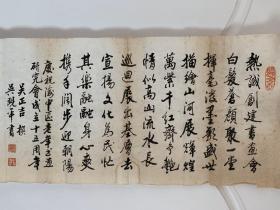 熱誠創建書画會
白髮蒼顔聚一堂
揮毫潑墨彰盛世
描繪山河展輝煌
萬紫千紅齊争艷
情似高山流水長
巡迴展出基層去
宣揚文化為民忙
其樂融融身心爽
携手闊步迎朝陽
慶祝海中區老年書画
研究會成立十五周年
吴正吉 撰
書